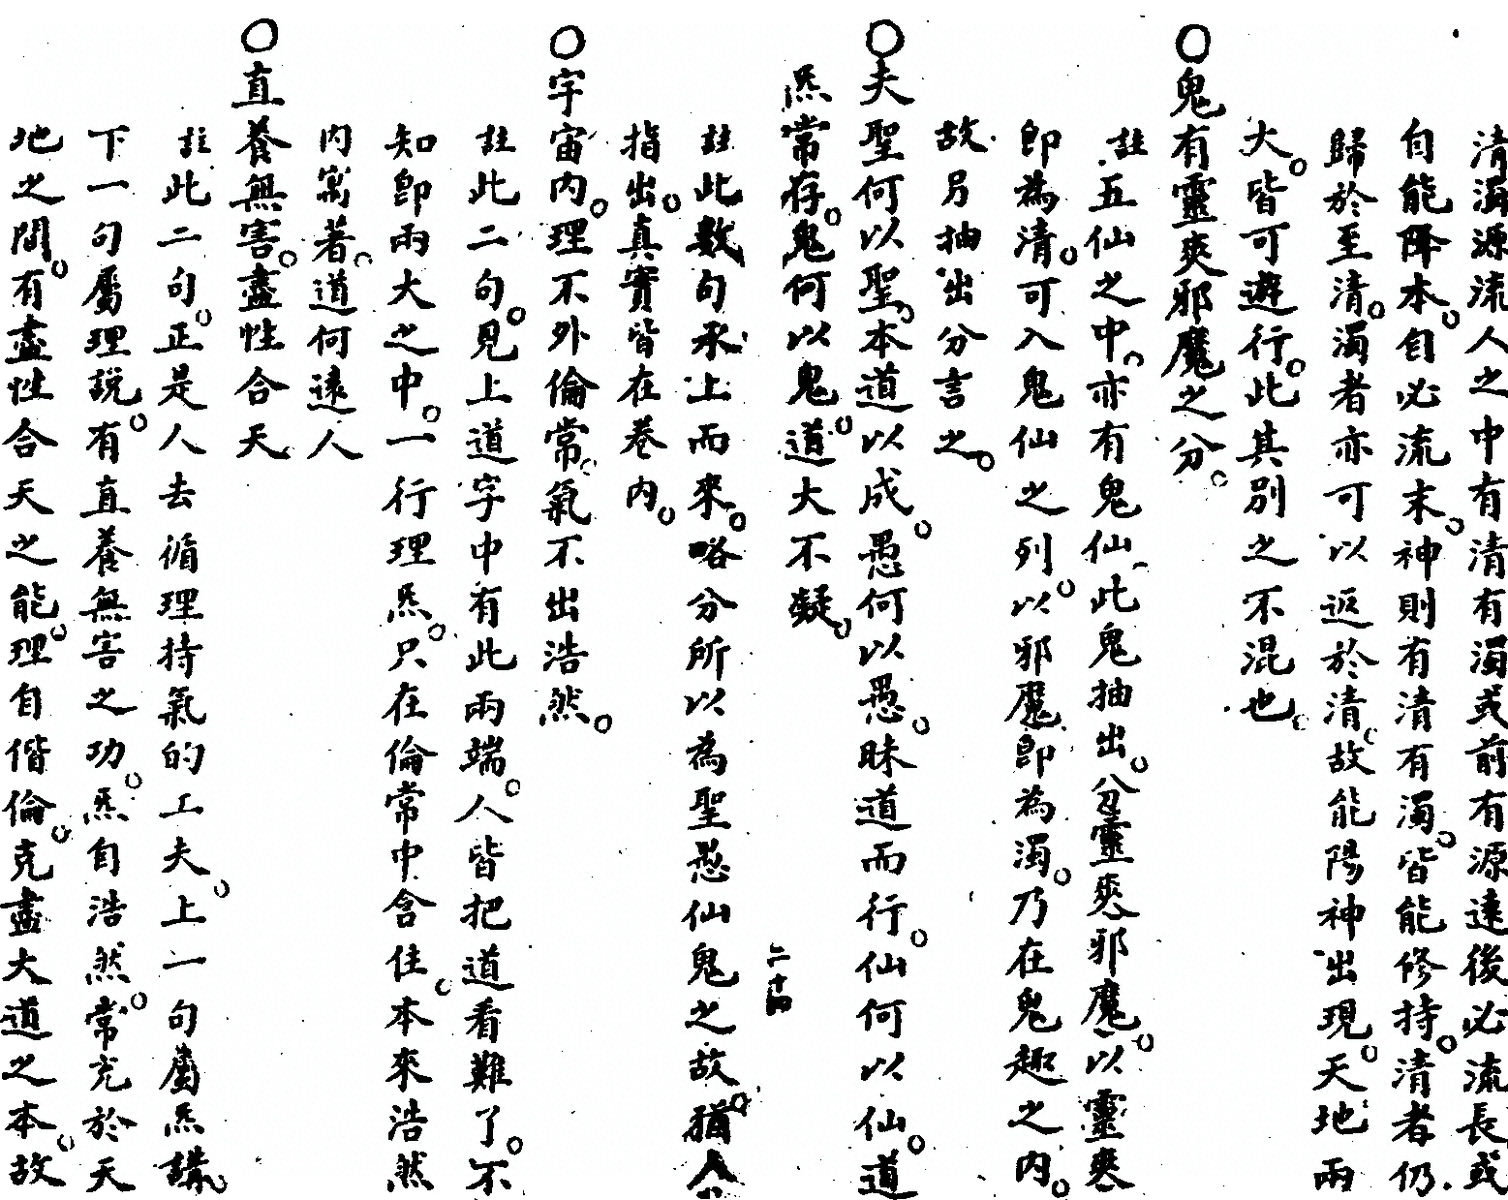 清濁源流人之中有清有濁或前有源遠後必流長或
自能降本。自必流末。神則有清有濁。皆能修持。清者仍
歸於至清。濁者亦可以返於清。故能陽神出現。天地兩
大。皆可遊行。此其別之不混也。
○鬼有靈爽邪魔之分。
註五仙之中。亦有鬼仙。此鬼抽出。分忍靈爽邪魔。以靈爽
即為清。可入鬼仙之列。以邪魔即為濁。乃在鬼趣之內。
故另抽出分言之。
○夫聖何以聖。本道以成。愚何以愚。昧道而行。仙何以仙。道
炁常存。鬼何以鬼。道大不凝。
註此數句承上而來。略分所以為聖愚仙鬼之故。猶人
指出。真實皆在卷內。
二十四
○宇宙內。理不外倫常。氣不出浩然。
註此二句。見上道字中有此兩端。人皆把道看難了。不
知即兩大之中。一行理炁。只在倫常中含住。本來浩然
內寓著。道何遠人
○直養無害。盡性合天
註此二句。正是人去循理持氣的工夫。上一句屬炁講。
下一句屬理說。有直養無害之功。炁自浩然。常充於天
地之間。有盡性合天之能。理自偕倫。克盡大道之本。故